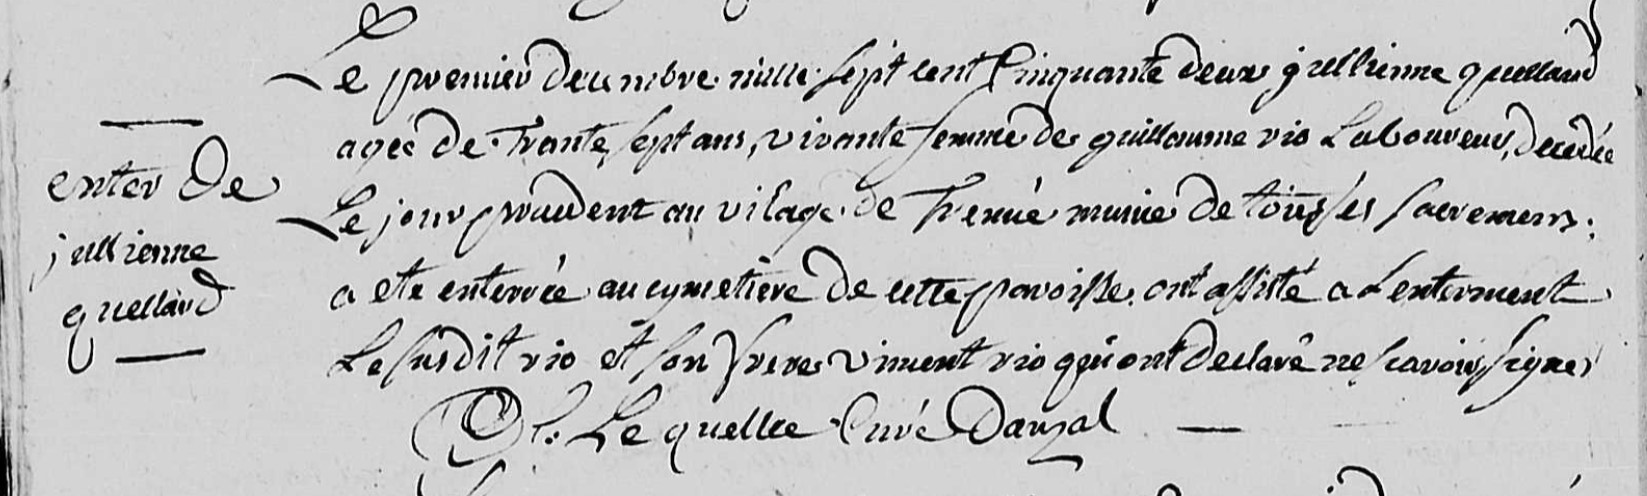 enter de
jullienne
quellard
Le premier decembre mille sept cent Cinquante deux jullienne quellard
agée de Trante sept ans, vivante femme de guillaume rio Laboureur, decedée
Le jour precedent au vilage de munie de tous ses sacremens.
a ete enterrée au cymetiere de cette paroisse. ont assisté a Lenterment
Le susdit rio et son frere vincent rio qui ont declaré ne scavoir signer
Le quellec Curé Dauzal